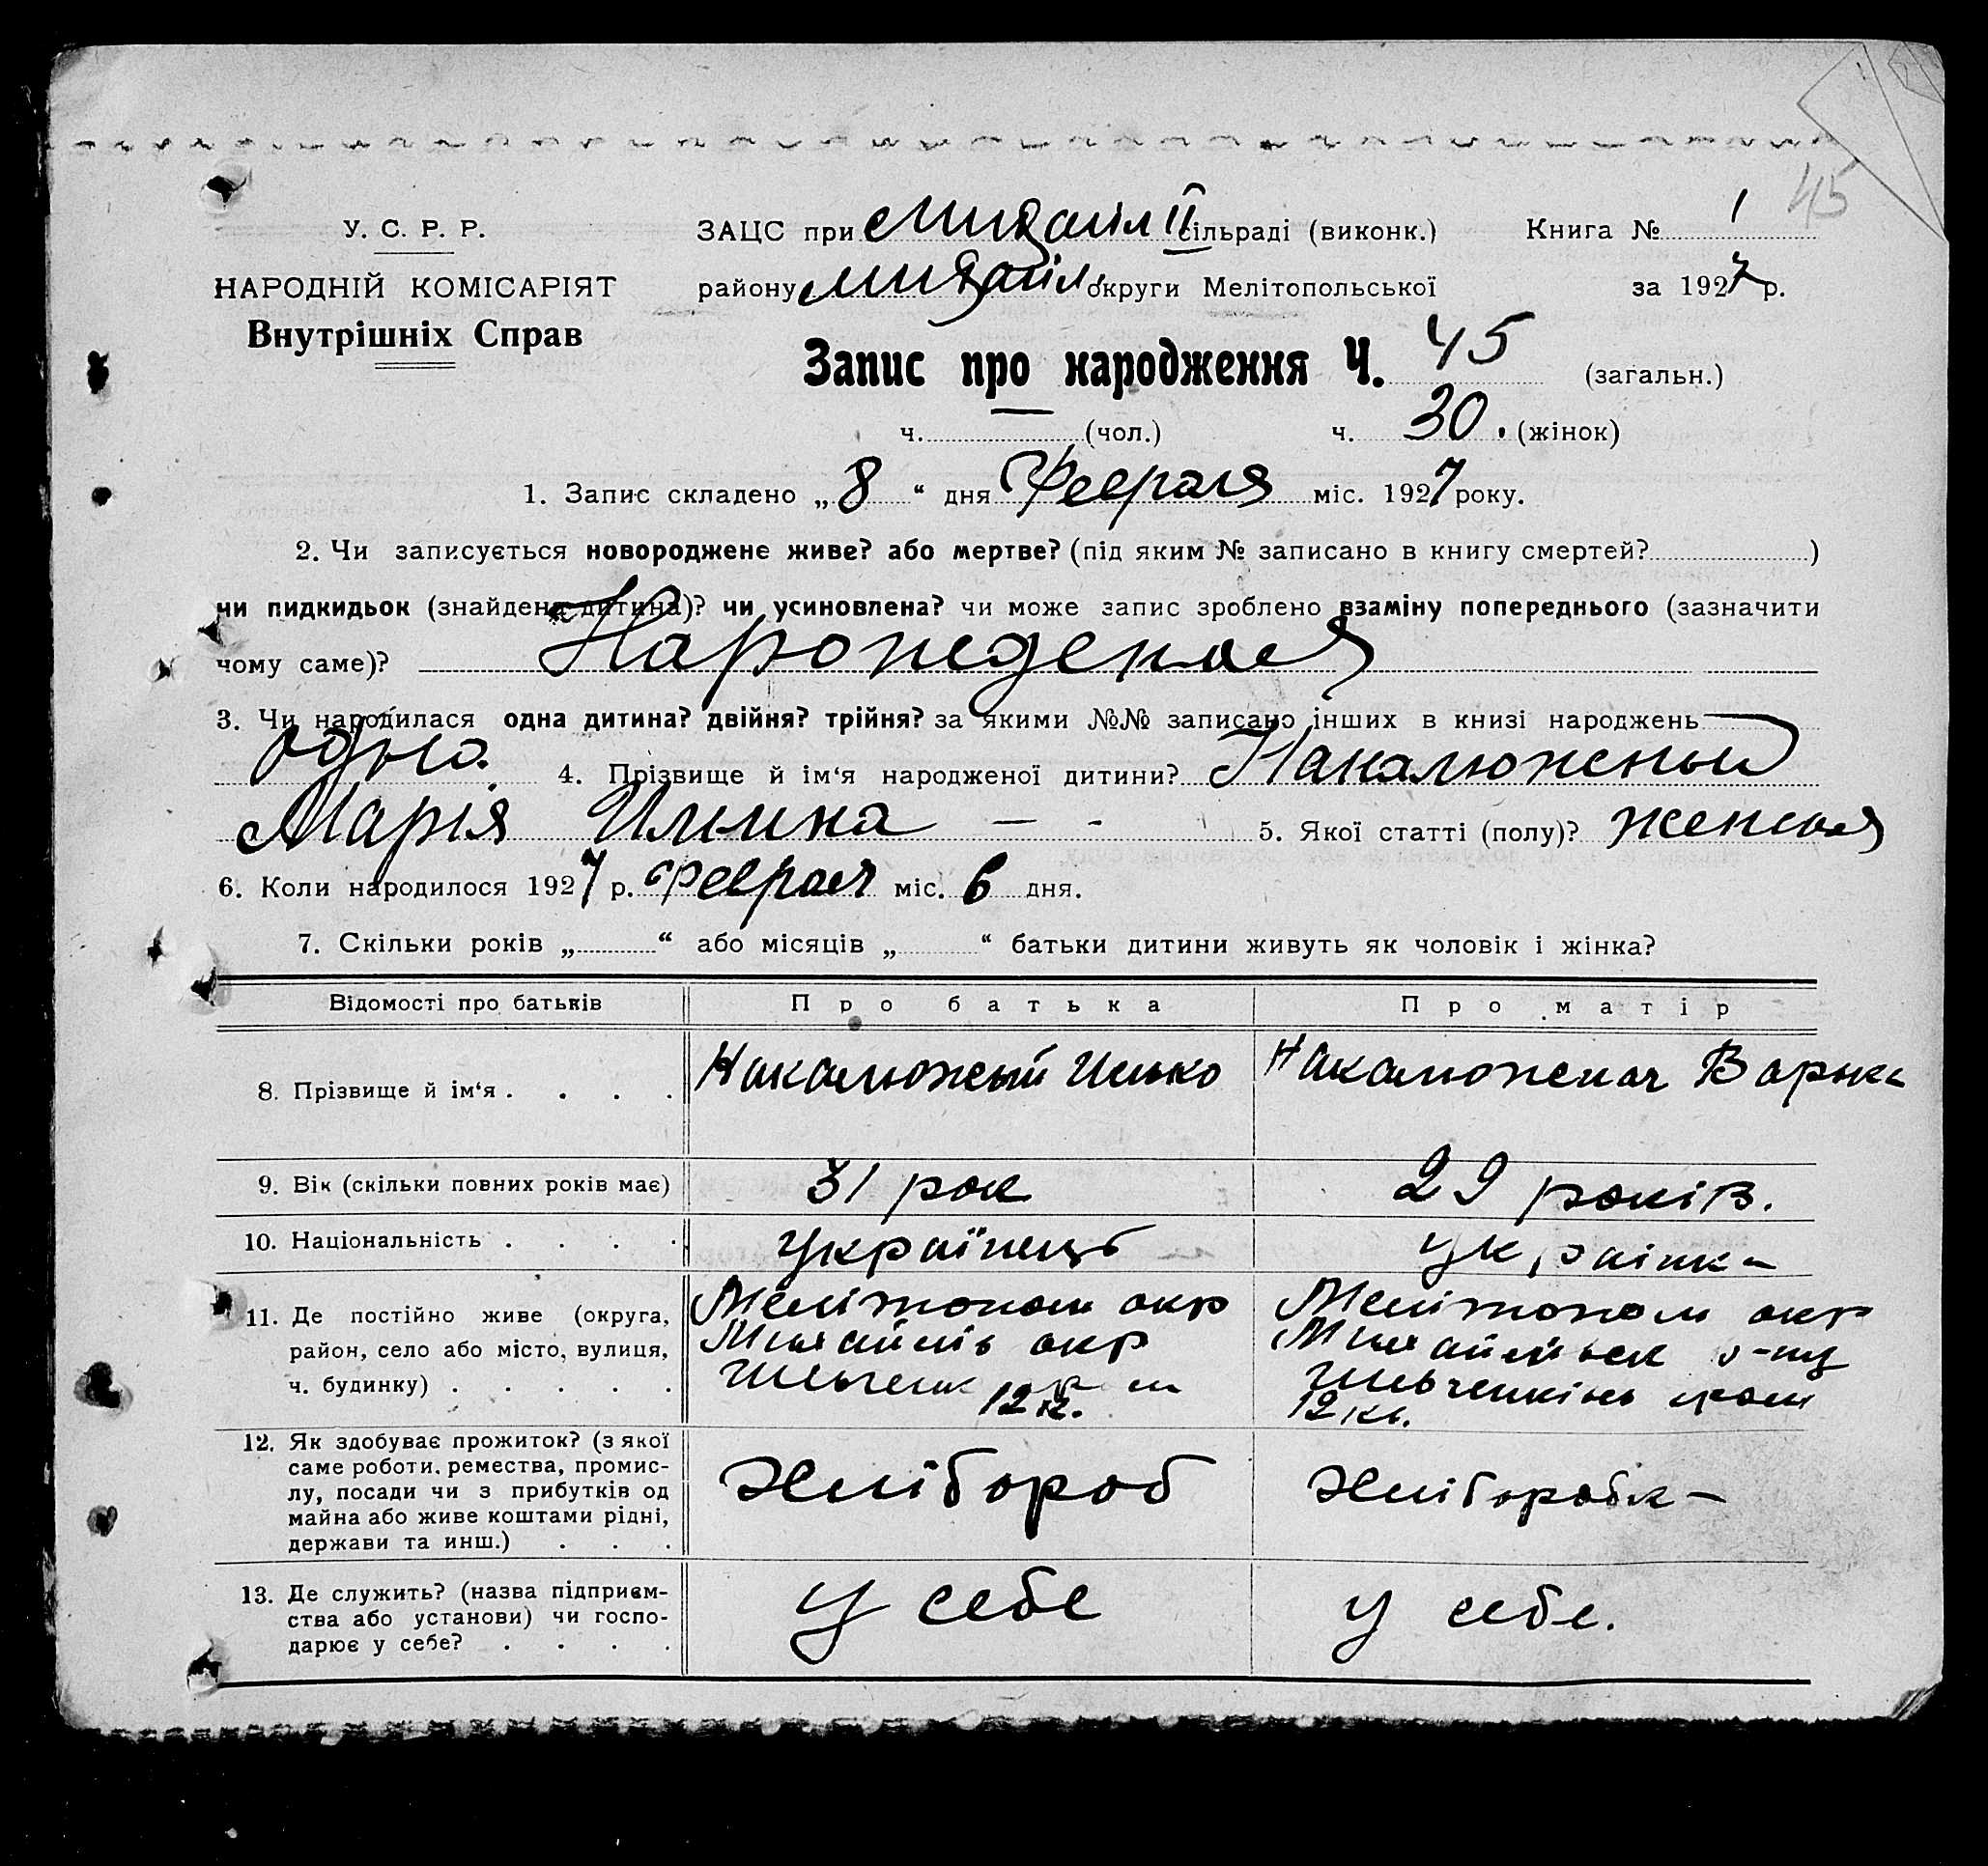 45
У. С. Р. Р.
ЗАЦС при Михайіл ІІ сільраді (виконк.) Книга № 1
НАРОДНІЙ КОМІСАРІЯТ
району Михайіл округи Мелітопольської за 1927 р.
Внутрішніх Справ
Запис про народження Ч. 45 (загальн.)
ч. — (чол.) ч. 30. (жінок)
1. Запис складено „ 8 “ дня Февраля міс. 1927 року.
2. Чи записується новороджене живе? або мертве? (під яким № записано в книгу смертей? )
чи пидкидьок (знайдена дитина)? чи усиновлена? чи може запис зроблено взаміну попереднього (зазначити
чому саме)? Нарожденая
3. Чи народилася одна дитина? двійня? трійня? за якими №№ записано інших в книзі народжень —
одна. 4. Прізвище й ім‘я народженої дитини? Накалюженый
Марія Илина — - 5. Якої статті (полу)? женская
6. Коли народилося 1927 р. Февраля міс. 6 дня.
7. Скільки років „ “ або місяців „ “ батьки дитини живуть як чоловік і жінка?
Відомості про батьків Про батька Про матір
8. Прізвище й ім‘я . . . . Накалюжный Илько Накалюженая Варька
9. Вік (скільки повних років має) 31 рок 29 років.
10. Національність . . . . Українець Українка
11. Де постійно живе (округа, Мелітопол окр Мелітопол окр
район, село або місто, вулиця, Михайлів окр Михайлівск
ч. будинку) . . . . . 12 кв.
12 кв.
12. Як здобуває прожиток? (з якої
саме роботи, ремества, промис-
лу, посади чи з прибутків од Хлібороб Хліборобк-
майна або живе коштами рідні,
держави та инш.) . . .
13. Де служить? (назва підприєм-
ства або установи) чи госпо- У себе У себе.
дарює у себе? . . . .